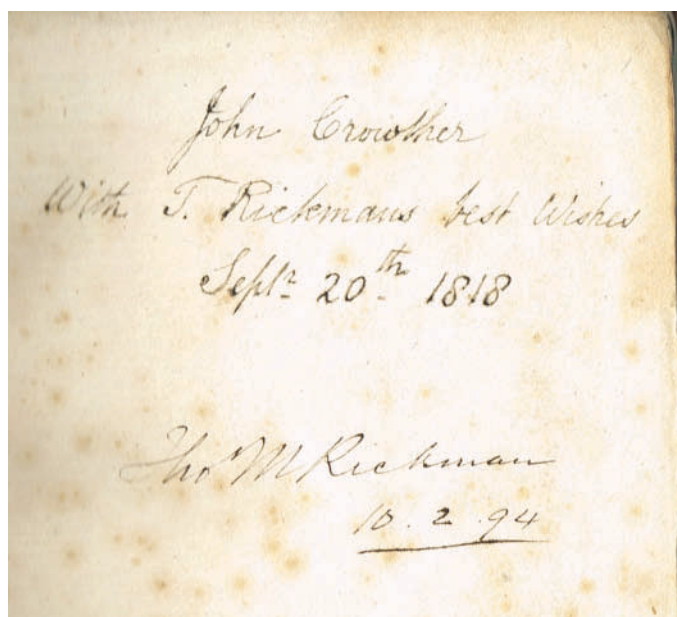 John Crowther
With T. Rickmans best Wishes
Septr 20th 1818
Thos M Rickman
10. 2. 94